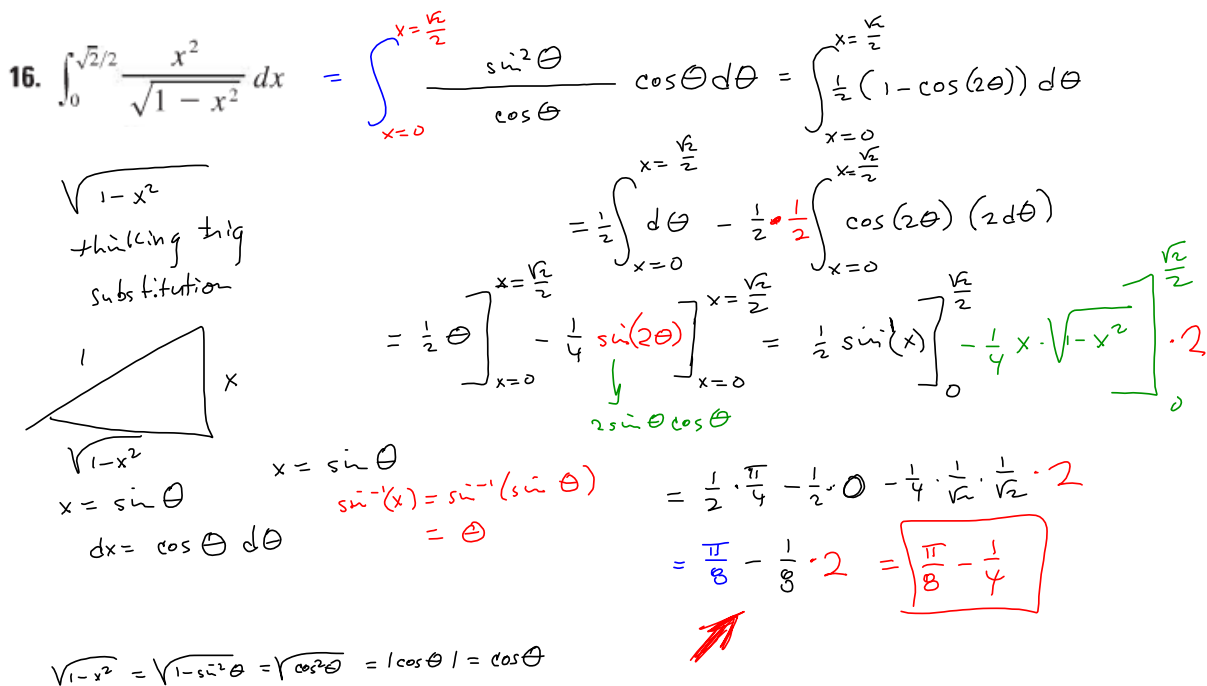 16. ∫₀^{√2/2} x²/√(1 − x²) dx = ∫_{x=0}^{x=√2/2} sin²θ/cosθ cosθ dθ = ∫_{x=0}^{x=√2/2} ½(1 − cos(2θ)) dθ
√(1−x²)
thinking trig
substitution
= ½ ∫_{x=0}^{x=√2/2} dθ − ½ · ½ ∫_{x=0}^{x=√2/2} cos(2θ) (2dθ)
= ½ θ ]_{x=0}^{x=√2/2} − ¼ sin(2θ) ]_{x=0}^{x=√2/2} = ½ sin⁻¹(x) ]_0^{√2/2} − ¼ x · √(1−x²) ]_0^{√2/2} · 2
2 sin θ cos θ
1
x
√(1−x²)
x = sin θ
dx = cos θ dθ
x = sin θ
sin⁻¹(x) = sin⁻¹(sin θ)
= θ
= ½ · π/4 − ½ · 0 − ¼ · 1/√2 · 1/√2 · 2
= π/8 − 1/8 · 2 = π/8 − 1/4
√(1−x²) = √(1−sin²θ) = √(cos²θ) = |cos θ| = cos θ